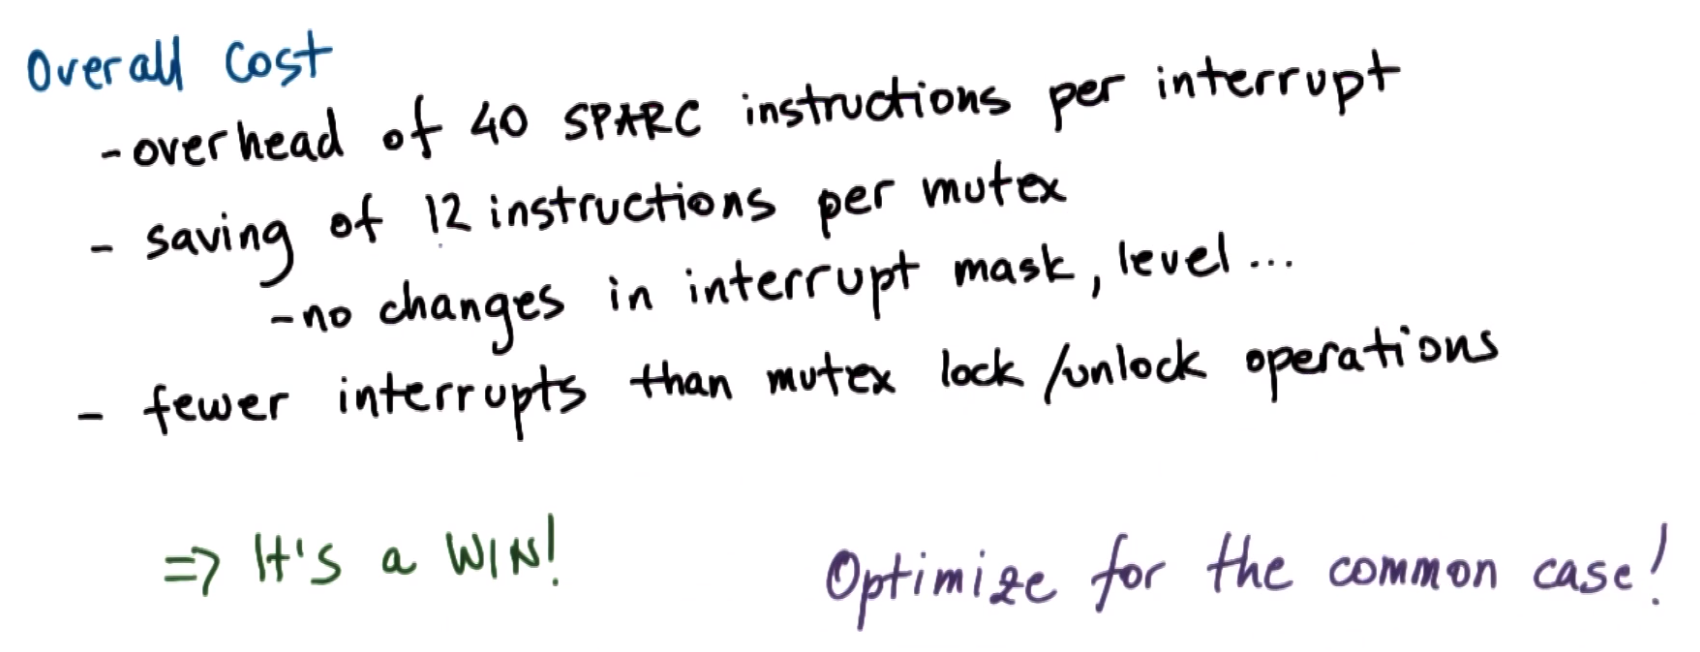 Overall Cost
- overhead of 40 SPARC instructions per interrupt
- saving of 12 instructions per mutex
- no changes in interrupt mask, level ...
- fewer interrupts than mutex lock/unlock operations
=> It's a WIN!
Optimize for the common case!